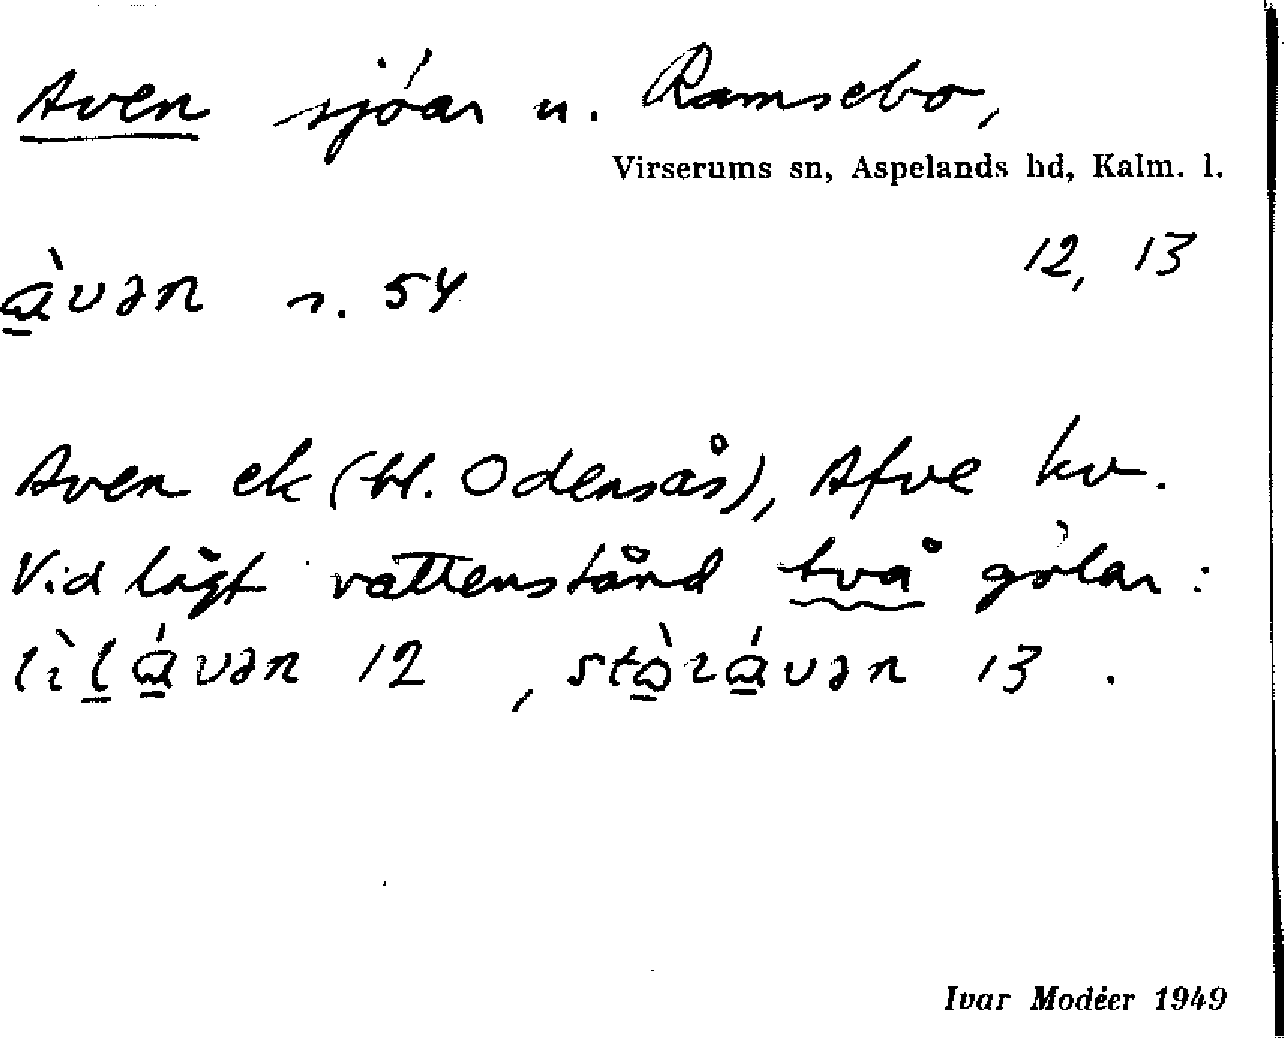 Aven sjöar n. Ramsebo,
Virserums sn, Aspelands hd, Kalm. l.
12, 13
à̱vən n. 54
Aven ek (bl. Odensås), Afve kv.
Vid lågt vattenstånd två gölar:
lìḻá̱vən 12, stò̱rá̱vən 13.
Ivar Modéer 1949